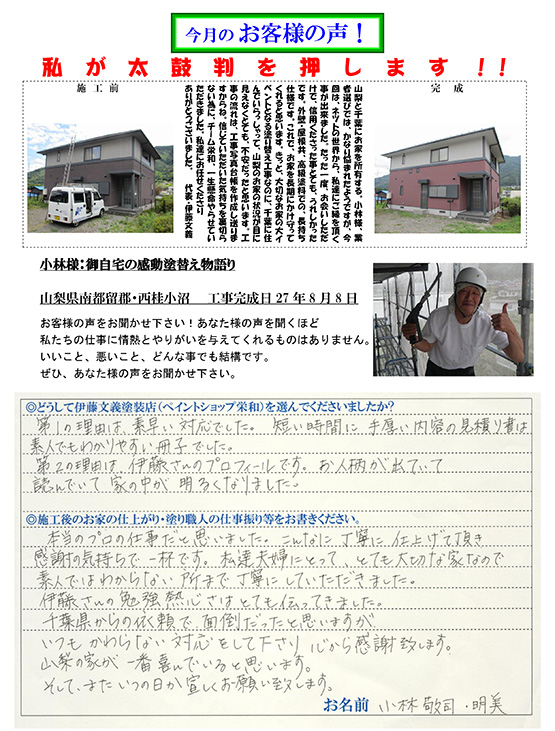 今月のお客様の声！
私が太鼓判を押します!!
施工前
完成
山梨と千葉にお家を所有する、小林様、業
者選びでは、かなり悩まれたようですが、今
回は、ネットの世界から、私達にご縁を頂く
事が出来ました。たった一度、お会いしただ
けで、信用くださった事とても、うれしかった
です。外壁・屋根共、高級塗料での、長持ち
仕様です。これで、お家を長期にかけ守って
くれると思います。きっと、大切なお家の大イ
ベントとなる塗り替え工事なのに、千葉に住
んでいらっしゃって、山梨のお家の状況が目に
見えなくとても、不安だったと思います。工
事の流れは、工事写真台帳を作成し送りま
すからね。信じていただいた気持ちを裏切ら
ない為に、チーム栄和、一生懸命やらせてい
ただきました。私達にお任せくださり
ありがとうございました。 代表・伊藤文義
小林様：御自宅の感動塗替え物語り
山梨県南都留郡・西桂小沼 工事完成日27年8月8日
お客様の声をお聞かせ下さい！あなた様の声を聞くほど
私たちの仕事に情熱とやりがいを与えてくれるものはありません。
いいこと、悪いこと、どんな事でも結構です。
ぜひ、あなた様の声をお聞かせ下さい。
◎どうして伊藤文義塗装店（ペイントショップ栄和）を選んでくださいましたか？
第1の理由は、素早い対応でした。短い時間に手厚い内容の見積り書は
素人でもわかりやすい冊子でした。
第2の理由は、伊藤さんのプロフィールです。お人柄が出ていて
読んでいて家の中が明るくなりました。
◎施工後のお家の仕上がり・塗り職人の仕事振り等をお書きください。
本当のプロの仕事だと思いました。こんなに丁寧に仕上げて頂き
感謝の気持ちで一杯です。私達夫婦にとって、とても大切な家なので
素人ではわからない所まで丁寧にしていただきました。
伊藤さんの勉強熱心さはとても伝ってきました。
千葉県からの依頼で面倒だったと思いますが
いつもかわらない対応をして下さり心から感謝致します。
山梨の家が一番喜んでいると思います。
そして、またいつの日か宜しくお願い致します。
お名前 小林敬司・明美